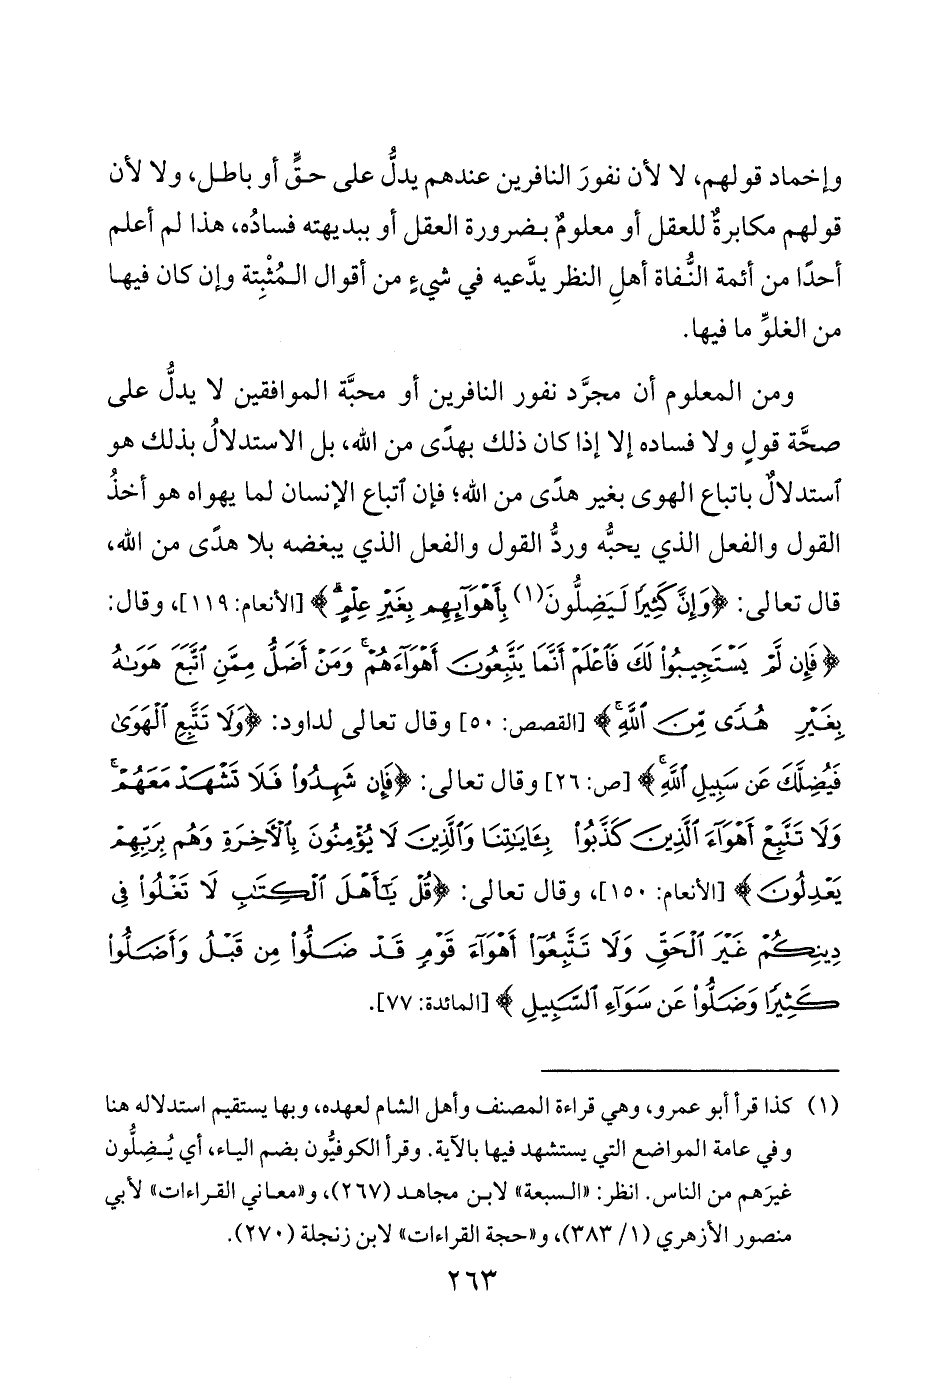 وإخماد قولهم، لا لأن نفورَ النافرين عندهم يدلُّ على حقٍّ أو باطل، ولا لأن
قولهم مكابرةٌ للعقل أو معلومٌ بضرورة العقل أو ببديهته فسادُه، هذا لم أعلم
أحدًا من أئمة النُّفاة أهلِ النظر يدَّعيه في شيءٍ من أقوال المُثْبِتة وإن كان فيها
من الغلوِّ ما فيها.
ومن المعلوم أن مجرَّد نفور النافرين أو محبَّة الموافقين لا يدلُّ على
صحَّة قولٍ ولا فساده إلا إذا كان ذلك بهدًى من الله، بل الاستدلالُ بذلك هو
ٱستدلالٌ باتباع الهوى بغير هدًى من الله؛ فإن ٱتباع الإنسان لما يهواه هو أخذُ
القول والفعل الذي يحبُّه وردُّ القول والفعل الذي يبغضه بلا هدًى من الله،
قال تعالى: ﴿وَإِنَّ كَثِيرًا لَيَضِلُّونَ(١) بِأَهْوَآئِهِم بِغَيْرِ عِلْمٍ﴾ [الأنعام: ١١٩]، وقال:
﴿فَإِن لَّمْ يَسْتَجِيبُوا۟ لَكَ فَٱعْلَمْ أَنَّمَا يَتَّبِعُونَ أَهْوَآءَهُمْ ۚ وَمَنْ أَضَلُّ مِمَّنِ ٱتَّبَعَ هَوَىٰهُ
بِغَيْرِ هُدًى مِّنَ ٱللَّهِ ۚ﴾ [القصص: ٥٠] وقال تعالى لداود: ﴿وَلَا تَتَّبِعِ ٱلْهَوَىٰ
فَيُضِلَّكَ عَن سَبِيلِ ٱللَّهِ ۚ﴾ [ص: ٢٦] وقال تعالى: ﴿فَإِن شَهِدُوا۟ فَلَا تَشْهَدْ مَعَهُمْ ۚ
وَلَا تَتَّبِعْ أَهْوَآءَ ٱلَّذِينَ كَذَّبُوا۟ بِـَٔايَٰتِنَا وَٱلَّذِينَ لَا يُؤْمِنُونَ بِٱلْـَٔاخِرَةِ وَهُم بِرَبِّهِمْ
يَعْدِلُونَ﴾ [الأنعام: ١٥٠]، وقال تعالى: ﴿قُلْ يَٰٓأَهْلَ ٱلْكِتَٰبِ لَا تَغْلُوا۟ فِى
دِينِكُمْ غَيْرَ ٱلْحَقِّ وَلَا تَتَّبِعُوٓا۟ أَهْوَآءَ قَوْمٍ قَدْ ضَلُّوا۟ مِن قَبْلُ وَأَضَلُّوا۟
كَثِيرًا وَضَلُّوا۟ عَن سَوَآءِ ٱلسَّبِيلِ﴾ [المائدة: ٧٧].
(١) كذا قرأ أبو عمرو، وهي قراءة المصنف وأهل الشام لعهده، وبها يستقيم استدلاله هنا
وفي عامة المواضع التي يستشهد فيها بالآية. وقرأ الكوفيُّون بضم الياء، أي يُضِلُّون
غيرَهم من الناس. انظر: «السبعة» لابن مجاهد (٢٦٧)، و«معاني القراءات» لأبي
منصور الأزهري (١/ ٣٨٣)، و«حجة القراءات» لابن زنجلة (٢٧٠).
٢٦٣